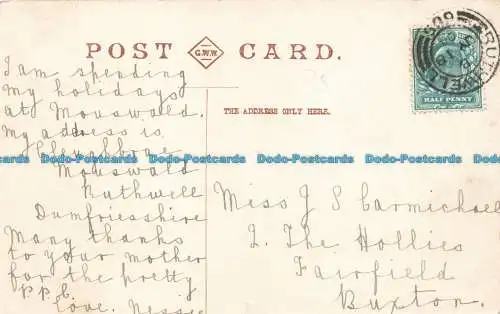 POST CARD.
G.W.W.
I am spending
my holidays
at Mouswald.
my address is
Mouswald
Ruthwell
Dumfriesshire
Many thanks
to your mother
for the pretty
p.p.c.
Love. Nessie
THE ADDRESS ONLY HERE.
HALF PENNY
RUTHWELL
Miss J S Carmichael
2. The Hollies
Fairfield
Buxton.
Dodo-Postcards Dodo-Postcards Dodo-Postcards Dodo-Postcards